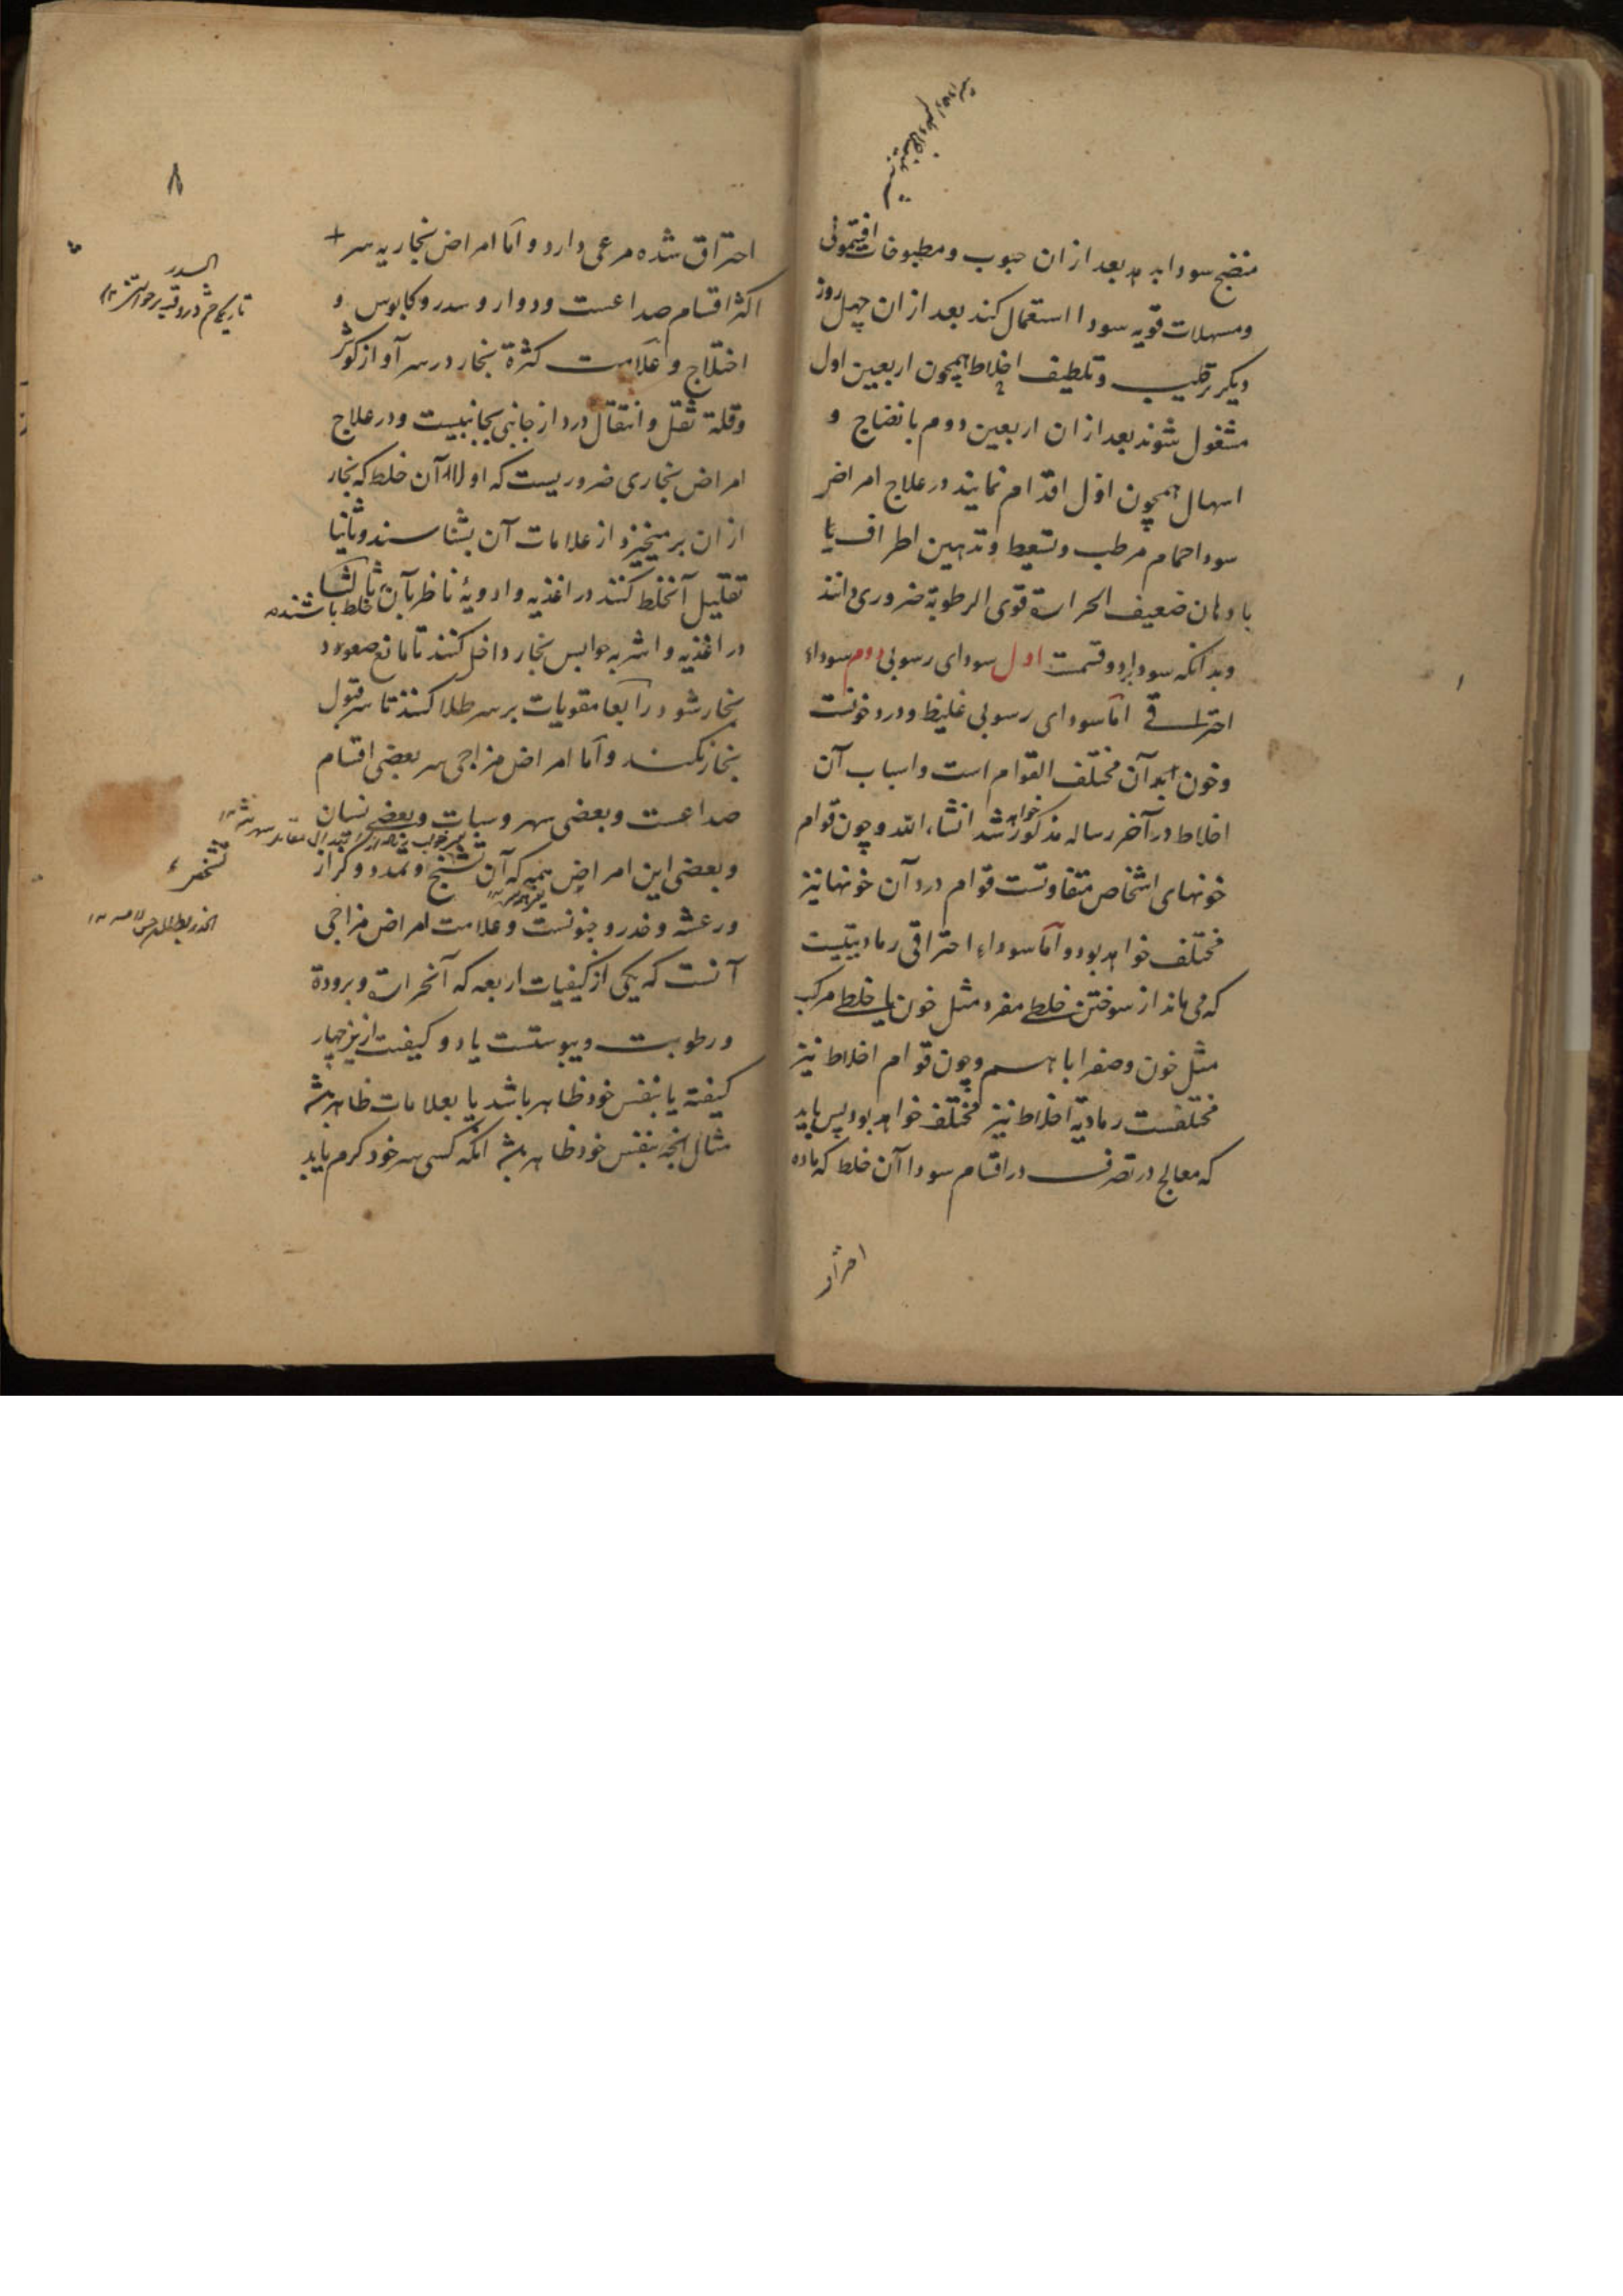 منضج سودا بدهد بعد از ان حبوب و مطبوخات افتیمونی
و مسهلات قویه سودا استعمال کند بعد از ان چهل روز
دیگر ترطیب و تلطیف اخلاط همچون اربعین اول
مشغول شوند بعد از ان اربعین دوم بانضاج و
اسهال همچون اول اقدام نمایند در علاج امراض
سودا حمام مرطب و تسعیط و تدهین اطراف یا
بادهان ضعیف الحرارة قوی الرطوبة ضروری دانند
و بدانکه سودا بر دو قسمت اول سودای رسوبی دوم سوداء
احتراقے اما سودای رسوبی غلیظ و درد خونست
و خون ابدان مختلف القوام است و اسباب آن
اخلاط در آخر رساله مذکور خواهد شد انشاء الله و چون قوام
خونهای اشخاص متفاوتست قوام درد آن خونها نیز
مختلف خواهد بود و اما سوداء احتراقی رمادیتیست
که می ماند از سوختن خلطے مفرد مثل خون یا خلطے مرکب
مثل خون و صفرا باهم و چون قوام اخلاط نیز
مختلفست رمادیة اخلاط نیز مختلف خواهد بود پس باید
که معالج در تصرف در اقسام سودا آن خلط که ماده
احتراق
۸
احتراق شده مرعی دارد و اما امراض بخاریه سر +
اکثر اقسام صداعست و دوار و سدر و کابوس و
اختلاج و علامت کثرة بخار در سر آواز گوش
و قلة ثقل و انتقال درد از جانبی بجانبیست و در علاج
امراض بخاری ضروریست که اولا آن خلط که بخار
از ان برمیخیزد از علامات آن بشناسند و ثانیا
تقلیل آنخلط کنند در اغذیه و ادویهٔ ناظر بآن خلط باشند ثالثا
در اغذیه و اشربه حوابس بخار داخل کنند تا مانع صعود
بخار شود رابعا مقویات بر سر طلا کنند تا سر قبول
بخار نکند و اما امراض مزاجی سر بعضی اقسام
صداعست و بعضی سهر و سبات و بعضے نسیان
و بعضی این امراض همه که آن تشنج و تمدد و کزاز
و رعشه و خدر و جنونست و علامت امراض مزاجی
آنست که یکی از کیفیات اربعه که آنحرارة و برودة
و رطوبت و یبوستست یا دو کیفیت ازین چهار
کیفیته یا بنفس خود ظاهر باشد یا بعلامات ظاهر باشد
مثال انچه بنفس خود ظاهر باشد انکه کسی سر خود گرم یابد
السدر